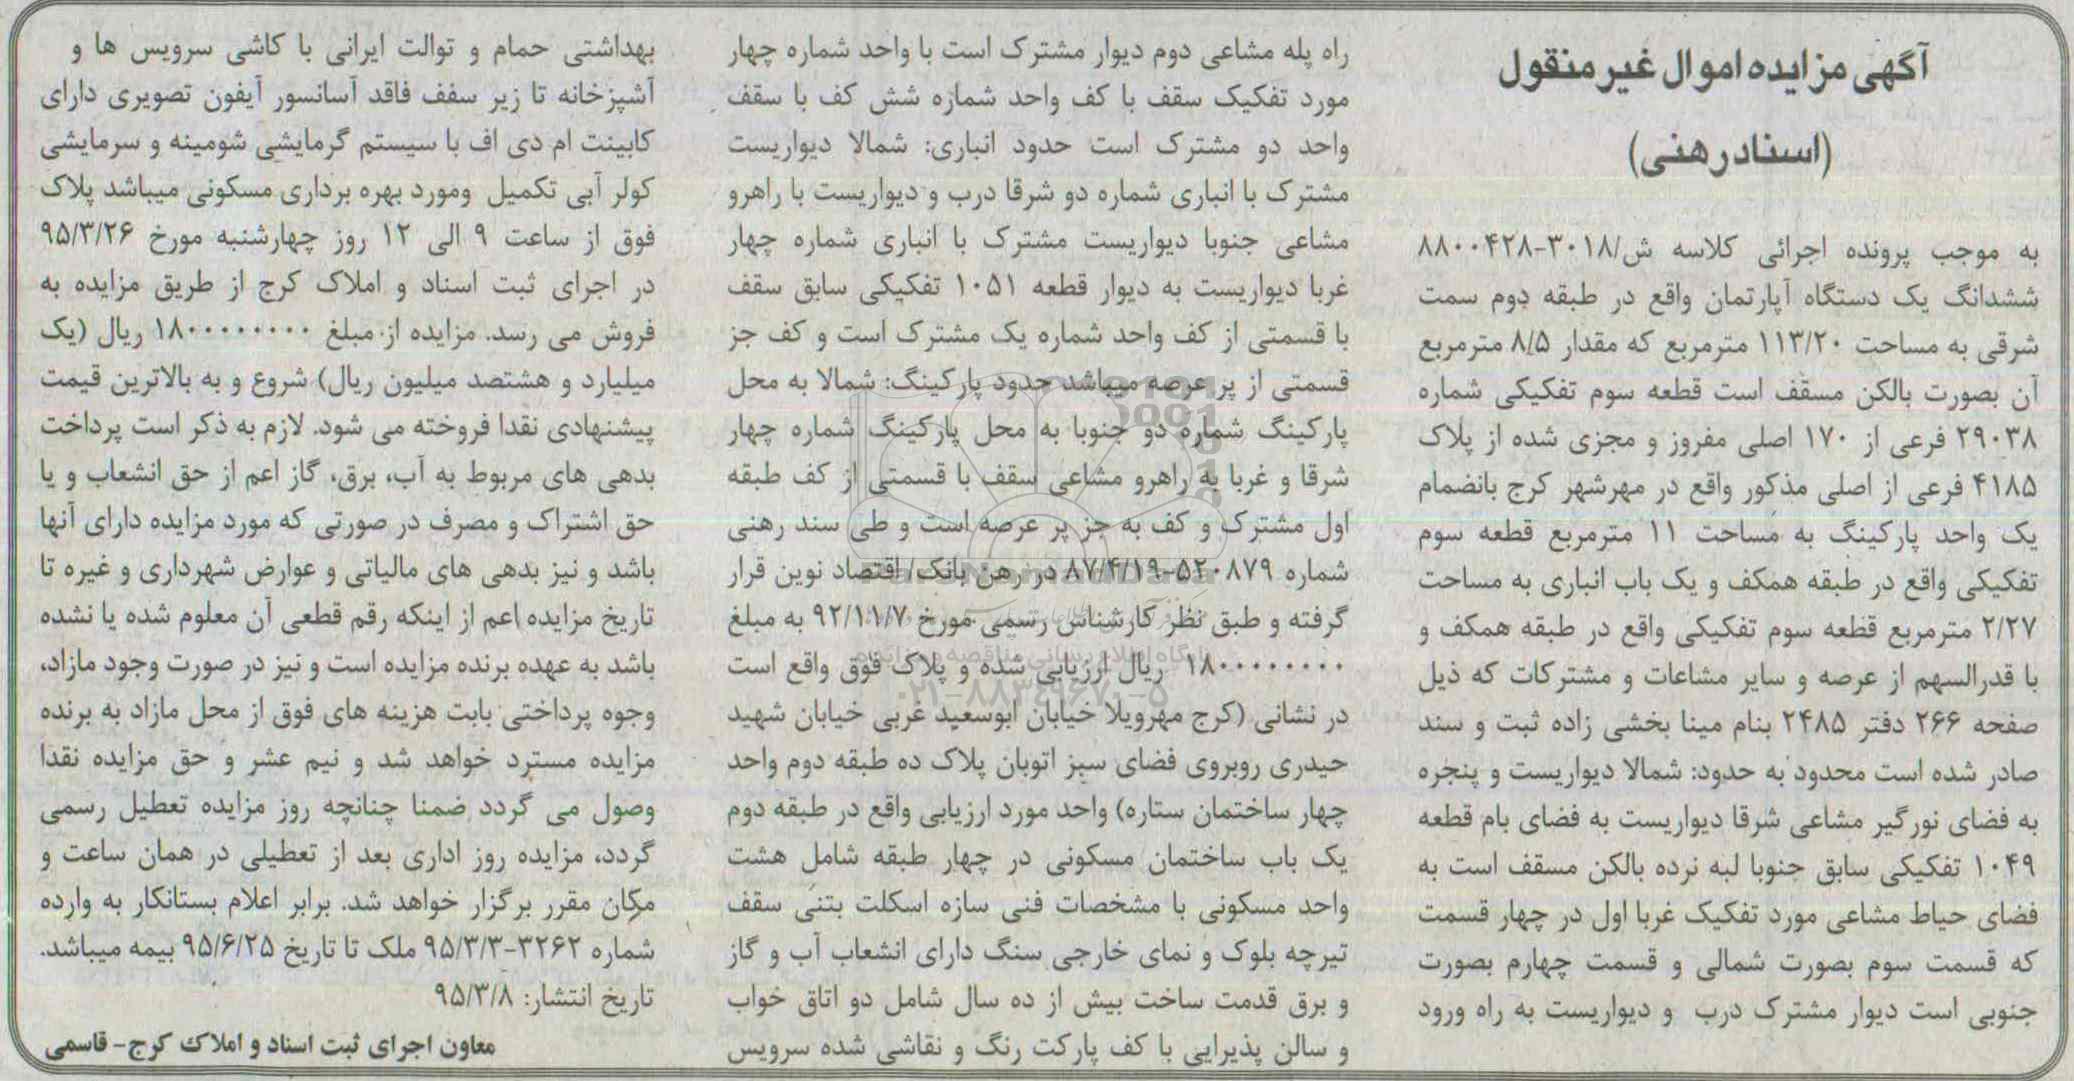 آگهی مزایده اموال غیر منقول
(اسناد رهنی)
به موجب پرونده اجرائی کلاسه ش/۳۰۱۸-۸۸۰۰۴۲۸
ششدانگ یک دستگاه آپارتمان واقع در طبقه دوم سمت
شرقی به مساحت ۱۱۳/۲۰ مترمربع که مقدار ۸/۵ مترمربع
آن بصورت بالکن مسقف است قطعه سوم تفکیکی شماره
۲۹۰۳۸ فرعی از ۱۷۰ اصلی مفروز و مجزی شده از پلاک
۴۱۸۵ فرعی از اصلی مذکور واقع در مهرشهر کرج بانضمام
یک واحد پارکینگ به مساحت ۱۱ مترمربع قطعه سوم
تفکیکی واقع در طبقه همکف و یک باب انباری به مساحت
۲/۲۷ مترمربع قطعه سوم تفکیکی واقع در طبقه همکف و
با قدرالسهم از عرصه و سایر مشاعات و مشترکات که ذیل
صفحه ۲۶۶ دفتر ۲۴۸۵ بنام مینا بخشی زاده ثبت و سند
صادر شده است محدود به حدود: شمالا دیواریست و پنجره
به فضای نورگیر مشاعی شرقا دیواریست به فضای بام قطعه
۱۰۴۹ تفکیکی سابق جنوبا لبه نرده بالکن مسقف است به
فضای حیاط مشاعی مورد تفکیک غربا اول در چهار قسمت
که قسمت سوم بصورت شمالی و قسمت چهارم بصورت
جنوبی است دیوار مشترک درب و دیواریست به راه ورود
راه پله مشاعی دوم دیوار مشترک است با واحد شماره چهار
مورد تفکیک سقف با کف واحد شماره شش کف با سقف
واحد دو مشترک است حدود انباری: شمالا دیواریست
مشترک با انباری شماره دو شرقا درب و دیواریست با راهرو
مشاعی جنوبا دیواریست مشترک با انباری شماره چهار
غربا دیواریست به دیوار قطعه ۱۰۵۱ تفکیکی سابق سقف
با قسمتی از کف واحد شماره یک مشترک است و کف جز
قسمتی از پر عرصه میباشد حدود پارکینگ: شمالا به محل
پارکینگ شماره دو جنوبا به محل پارکینگ شماره چهار
شرقا و غربا به راهرو مشاعی سقف با قسمتی از کف طبقه
اول مشترک و کف به جز پر عرصه است و طی سند رهنی
شماره ۵۲۰۸۷۹-۸۷/۴/۱۹ در رهن بانک/ اقتصاد نوین قرار
گرفته و طبق نظر کارشناس رسمی مورخ ۹۲/۱۱/۷ به مبلغ
۱۸۰۰۰۰۰۰۰۰ ریال ارزیابی شده و پلاک فوق واقع است
در نشانی (کرج مهرویلا خیابان ابوسعید غربی خیابان شهید
حیدری روبروی فضای سبز اتوبان پلاک ده طبقه دوم واحد
چهار ساختمان ستاره) واحد مورد ارزیابی واقع در طبقه دوم
یک باب ساختمان مسکونی در چهار طبقه شامل هشت
واحد مسکونی با مشخصات فنی سازه اسکلت بتنی سقف
تیرچه بلوک و نمای خارجی سنگ دارای انشعاب آب و گاز
و برق قدمت ساخت بیش از ده سال شامل دو اتاق خواب
و سالن پذیرایی با کف پارکت رنگ و نقاشی شده سرویس
بهداشتی حمام و توالت ایرانی با کاشی سرویس ها و
آشپزخانه تا زیر سفف فاقد آسانسور آیفون تصویری دارای
کابینت ام دی اف با سیستم گرمایشی شومینه و سرمایشی
کولر آبی تکمیل ومورد بهره برداری مسکونی میباشد پلاک
فوق از ساعت ۹ الی ۱۲ روز چهارشنبه مورخ ۹۵/۳/۲۶
در اجرای ثبت اسناد و املاک کرج از طریق مزایده به
فروش می رسد. مزایده از مبلغ ۱۸۰۰۰۰۰۰۰۰ ریال (یک
میلیارد و هشتصد میلیون ریال) شروع و به بالاترین قیمت
پیشنهادی نقدا فروخته می شود. لازم به ذکر است پرداخت
بدهی های مربوط به آب، برق، گاز اعم از حق انشعاب و یا
حق اشتراک و مصرف در صورتی که مورد مزایده دارای آنها
باشد و نیز بدهی های مالیاتی و عوارض شهرداری و غیره تا
تاریخ مزایده اعم از اینکه رقم قطعی آن معلوم شده یا نشده
باشد به عهده برنده مزایده است و نیز در صورت وجود مازاد،
وجوه پرداختی بابت هزینه های فوق از محل مازاد به برنده
مزایده مسترد خواهد شد و نیم عشر و حق مزایده نقدا
وصول می گردد ضمنا چنانچه روز مزایده تعطیل رسمی
گردد، مزایده روز اداری بعد از تعطیلی در همان ساعت و
مکان مقرر برگزار خواهد شد. برابر اعلام بستانکار به وارده
شماره ۳۲۶۲-۹۵/۳/۳ ملک تا تاریخ ۹۵/۶/۲۵ بیمه میباشد.
تاریخ انتشار: ۹۵/۳/۸
معاون اجرای ثبت اسناد و املاک کرج- قاسمی
۰۲۱-۸۸۳۴۹۶۷۰-۵